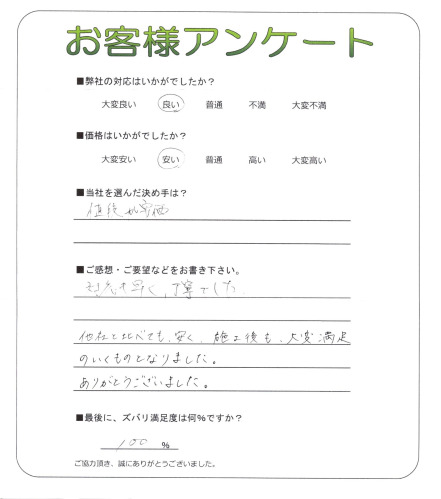 お客様アンケート
■弊社の対応はいかがでしたか?
大変良い 良い 普通 不満 大変不満
■価格はいかがでしたか?
大変安い 安い 普通 高い 大変高い
■当社を選んだ決め手は?
値段が
■ご感想・ご要望などをお書き下さい。
対応も早く、丁寧でした。
他社と比べても、安く、施工後も、大変満足
のいくものとなりました。
ありがとうございました。
■最後に、ズバリ満足度は何%ですか?
100 %
ご協力頂き、誠にありがとうございました。